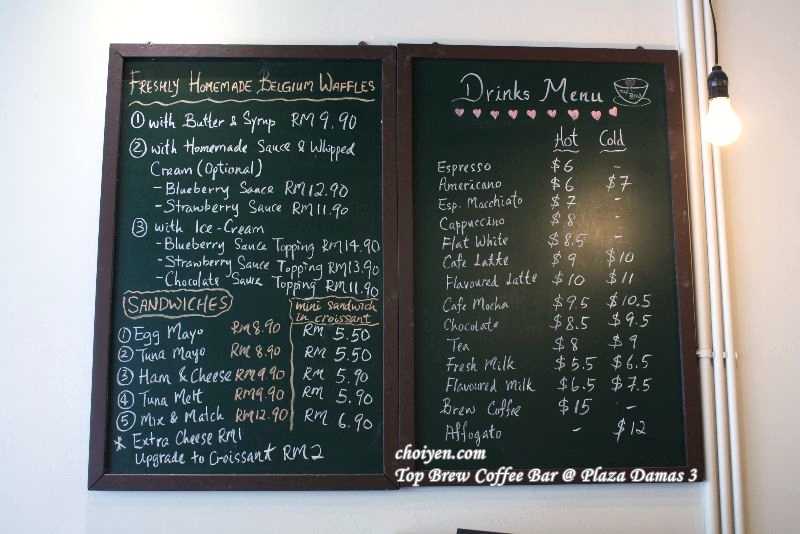 FRESHLY HOMEMADE BELGIUM WAFFLES
① with Butter & Syrup RM 9.90
② with Homemade Sauce & Whipped
Cream (Optional)
- Blueberry Sauce RM 12.90
- Strawberry Sauce RM 11.90
③ with Ice-Cream
- Blueberry Sauce Topping RM 14.90
- Strawberry Sauce Topping RM 13.90
- Chocolate Sauce Topping RM 11.90
SANDWICHES
mini sandwich
in croissant
① Egg Mayo RM 8.90 RM 5.50
② Tuna Mayo RM 8.90 RM 5.50
③ Ham & Cheese RM 9.90 RM 5.90
④ Tuna Melt RM 9.90 RM 5.90
⑤ Mix & Match RM 12.90 RM 6.90
* Extra Cheese RM1
Upgrade to Croissant RM 2
Drinks Menu
Hot Cold
Espresso $6 -
Americano $6 $7
Esp. Macchiato $7 -
Cappuccino $8 -
Flat White $8.5 -
Cafe Latte $9 $10
Flavoured Latte $10 $11
Cafe Mocha $9.5 $10.5
Chocolate $8.5 $9.5
Tea $8 $9
Fresh Milk $5.5 $6.5
Flavoured Milk $6.5 $7.5
Brew Coffee $15 -
Affogato - $12
choiyen.com
Top Brew Coffee Bar @ Plaza Damas 3